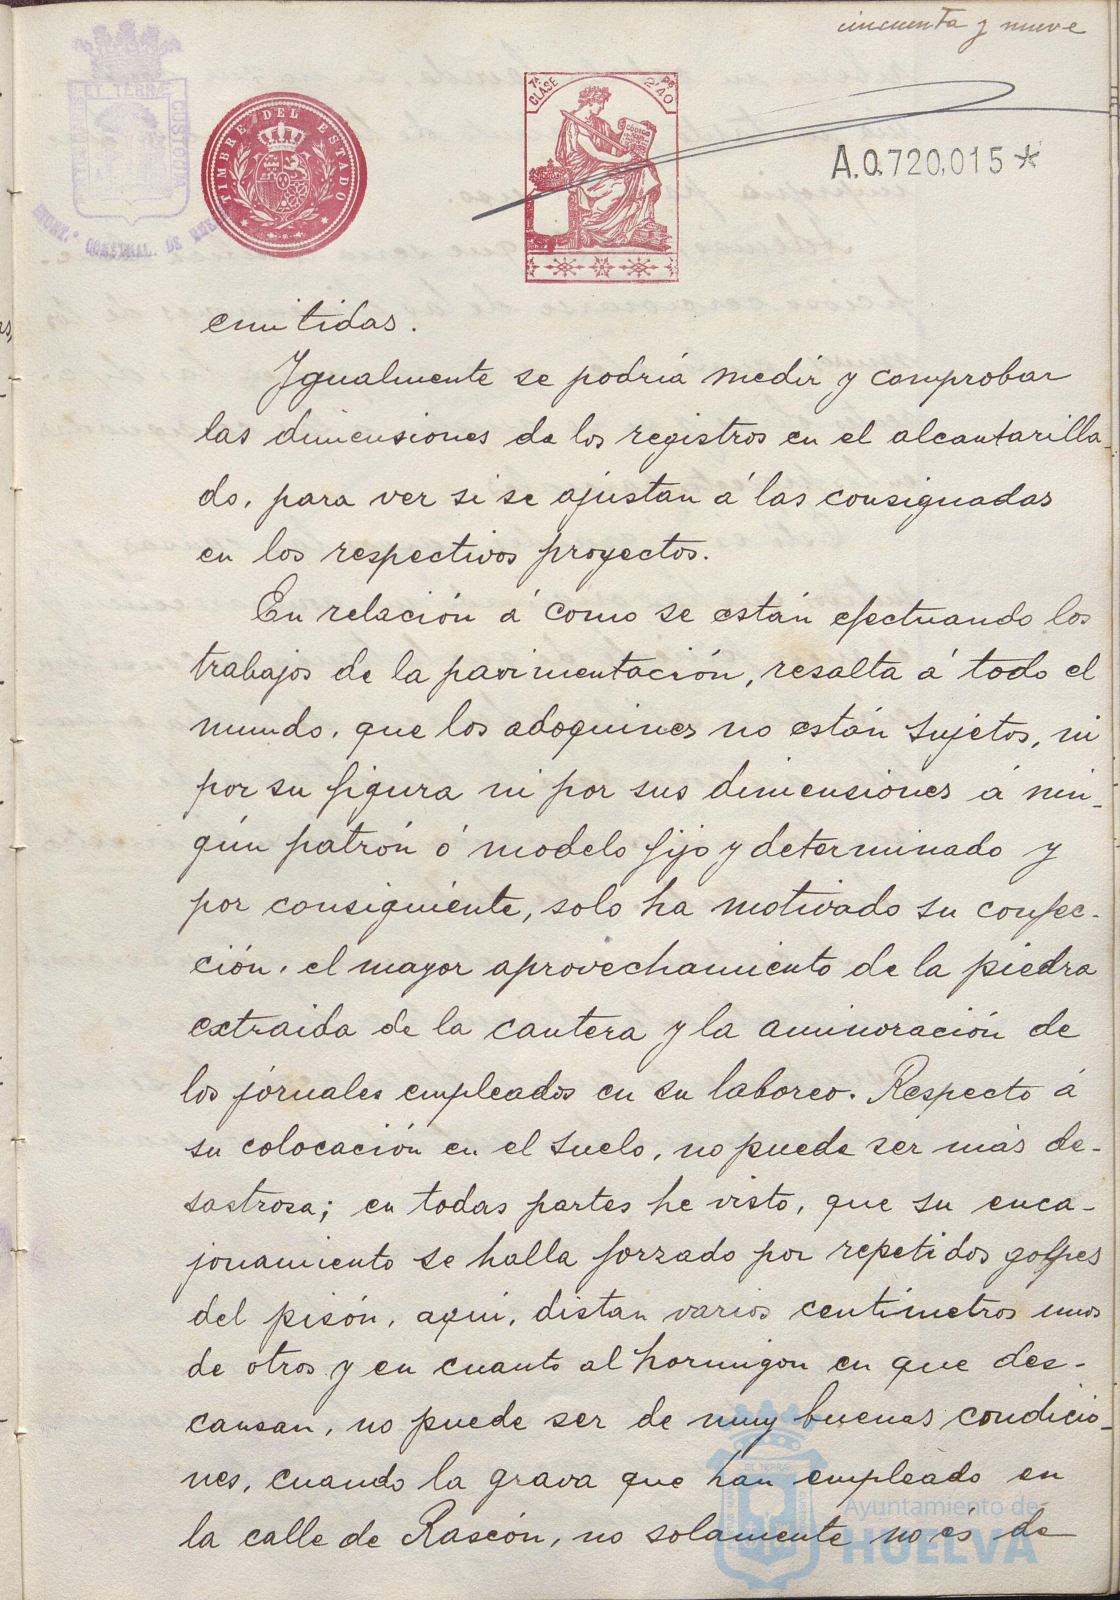 cincuenta y nueve
7ª CLASE
2'40
TIMBRE DEL ESTADO
CODIGO
ET TERRÆ CUSTODIA
A.0.720,015 *
emitidas.
Igualmente se podría medir y comprobar
las dimensiones de los registros en el alcantarilla-
do, para ver si se ajustan á las consignadas
en los respectivos proyectos.
En relación á como se están efectuando los
trabajos de la pavimentación, resalta á todo el
mundo, que los adoquines no están sujetos, ni
por su figura ni por sus dimensiones á nin-
gún patrón ó modelo fijo y determinado y
por consiguiente, solo ha motivado su confec-
ción, el mayor aprovechamiento de la piedra
extraida de la cantera y la aminoración de
los jornales empleados en su laboreo. Respecto á
su colocación en el suelo, no puede ser más de-
sastrosa; en todas partes he visto, que su enca-
jonamiento se halla forzado por repetidos golpes
del pisón, aquí, distan varios centímetros unos
de otros y en cuanto al hormigon en que des-
cansan, no puede ser de muy buenas condicio-
nes, cuando la grava que han empleado en
la calle de Rascón, no solamente no és de
Ayuntamiento de
HUELVA